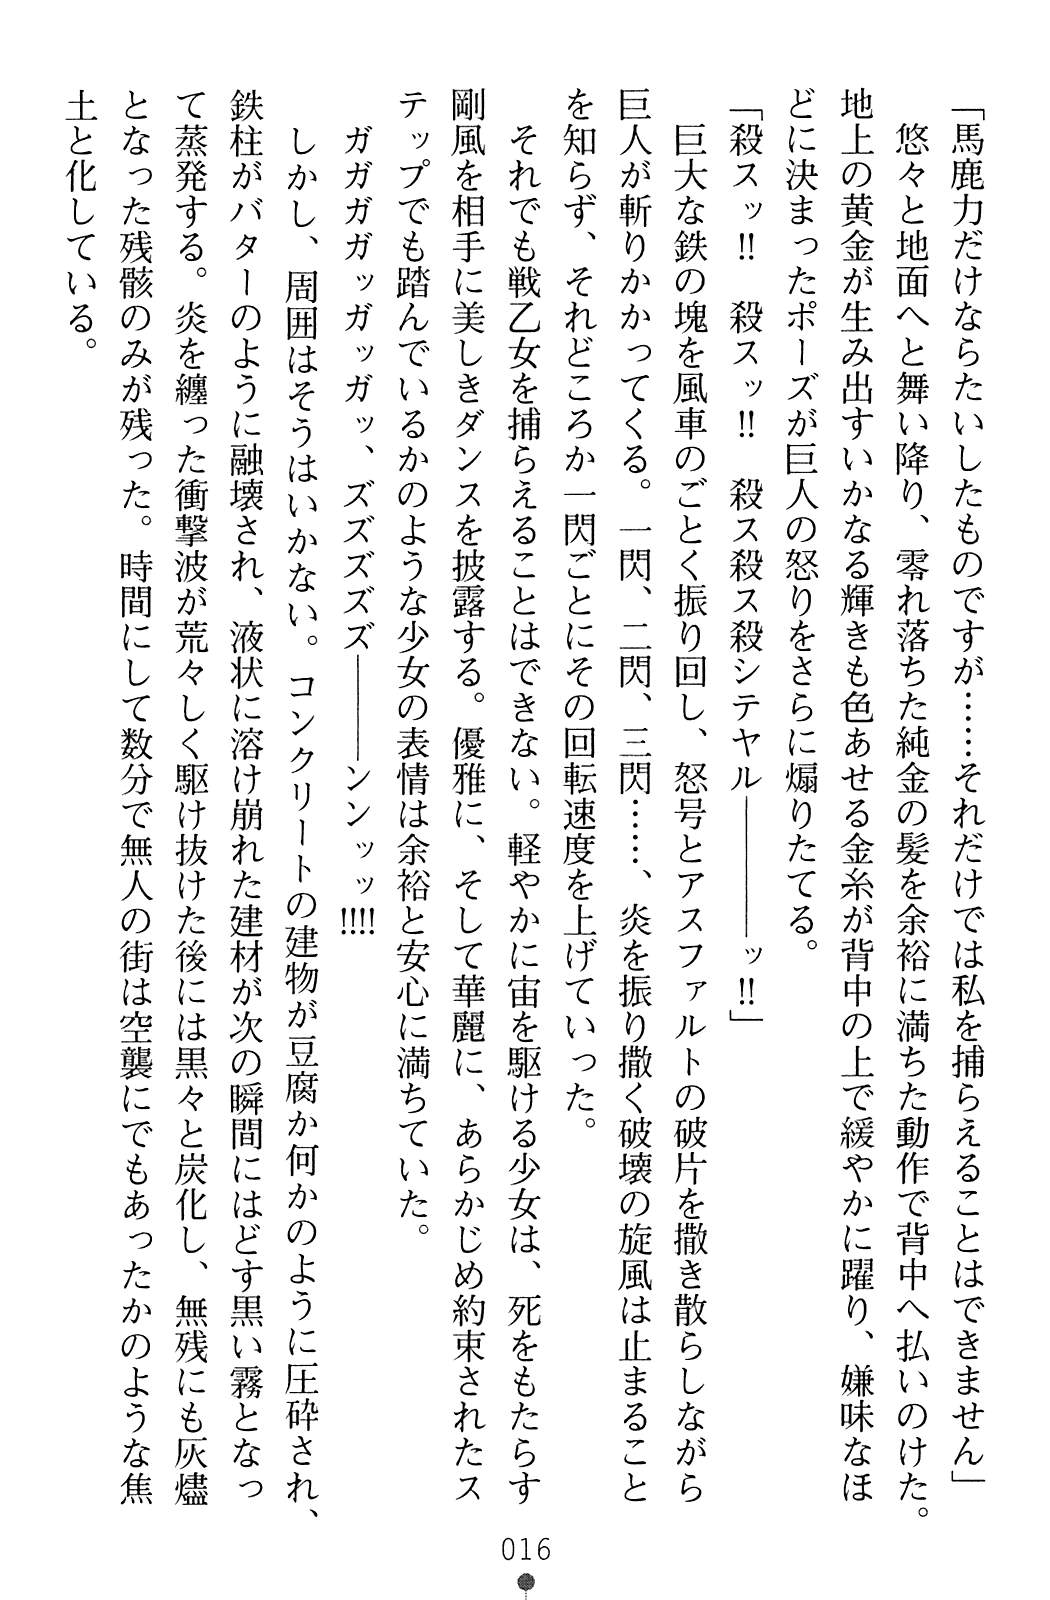 「馬鹿力だけならたいしたものですが……それだけでは私を捕らえることはできません」
　悠々と地面へと舞い降り、零れ落ちた純金の髪を余裕に満ちた動作で背中へ払いのけた。
地上の黄金が生み出すいかなる輝きも色あせる金糸が背中の上で緩やかに躍り、嫌味なほ
どに決まったポーズが巨人の怒りをさらに煽りたてる。
「殺スッ!!　殺スッ!!　殺ス殺ス殺シテヤル――――ッ!!」
　巨大な鉄の塊を風車のごとく振り回し、怒号とアスファルトの破片を撒き散らしながら
巨人が斬りかかってくる。一閃、二閃、三閃……、炎を振り撒く破壊の旋風は止まること
を知らず、それどころか一閃ごとにその回転速度を上げていった。
　それでも戦乙女を捕らえることはできない。軽やかに宙を駆ける少女は、死をもたらす
剛風を相手に美しきダンスを披露する。優雅に、そして華麗に、あらかじめ約束されたス
テップでも踏んでいるかのような少女の表情は余裕と安心に満ちていた。
　ガガガガッガッガッ、ズズズズズ―――ンンッッ!!!!
　しかし、周囲はそうはいかない。コンクリートの建物が豆腐か何かのように圧砕され、
鉄柱がバターのように融壊され、液状に溶け崩れた建材が次の瞬間にはどす黒い霧となっ
て蒸発する。炎を纏った衝撃波が荒々しく駆け抜けた後には黒々と炭化し、無残にも灰燼
となった残骸のみが残った。時間にして数分で無人の街は空襲にでもあったかのような焦
土と化している。
016